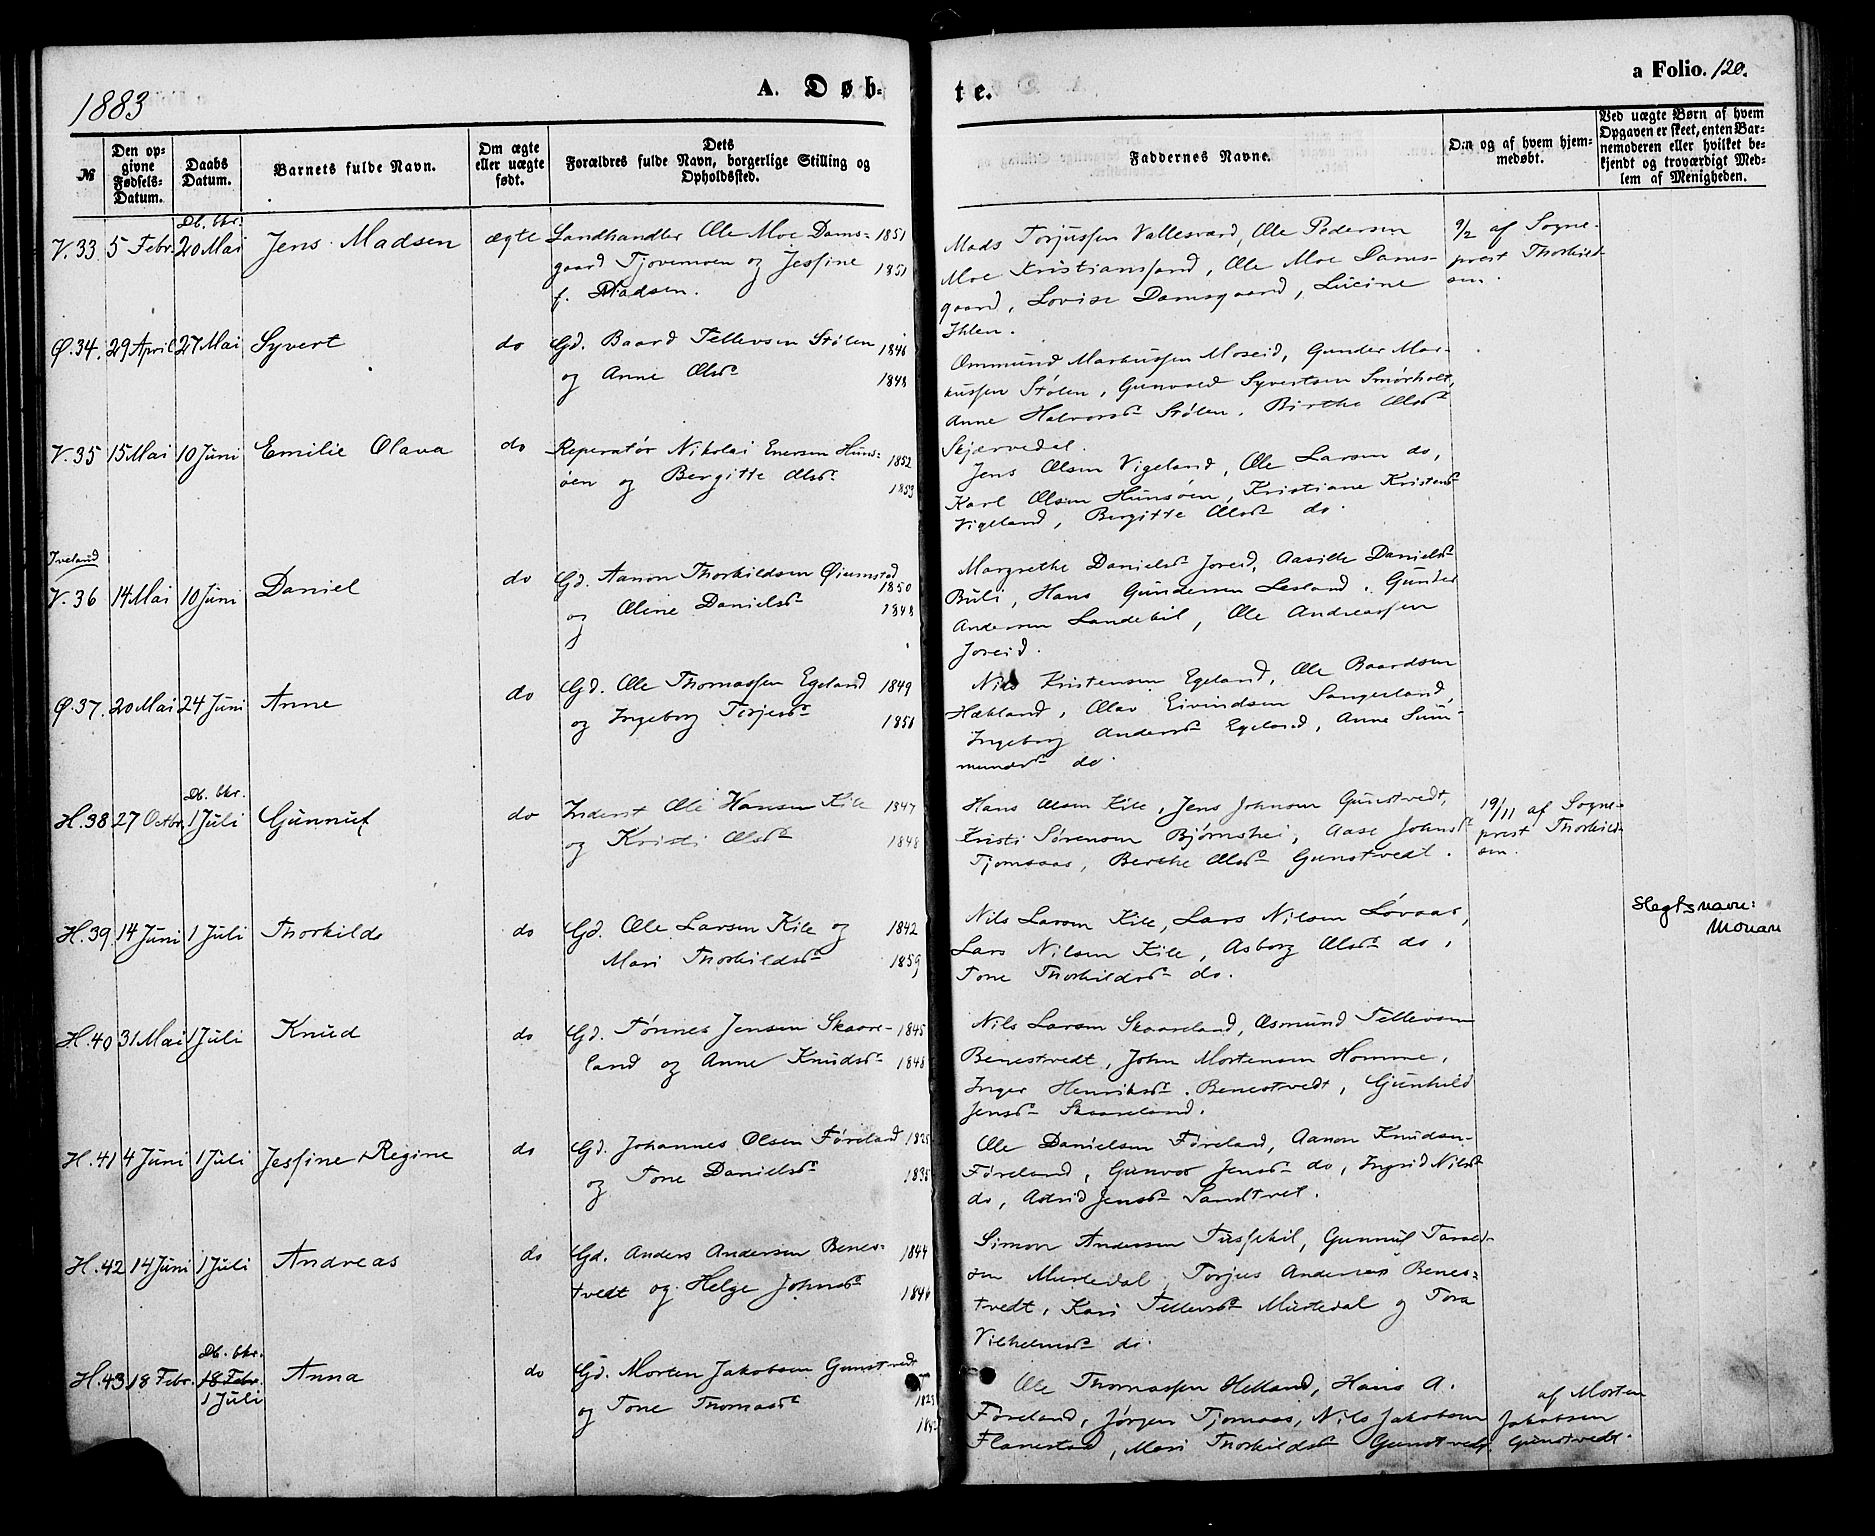 1883
A. Døb-
te.
a Folio. 120.
№
Den op-
givne
Fødsels-
Datum.
Daabs
Datum.
Barnets fulde Navn.
Om ægte
eller uægte
født.
Dets
Forældres fulde Navn, borgerlige Stilling og
Opholdssted.
Faddernes Navne.
Om og af hvem hjem-
medøbt.
Ved uægte Børn af hvem
Opgaven er skeet, enten Bar-
nemoderen eller hvilket be-
kjendt og troværdigt Med-
lem af Menigheden.
Db. bkr.
V. 33 5 Febr. 20 Mai Jens Madsen ægte Landhandler Ole Moe Dams- 1851
gaard Tjovenmoen og Jesfine 1851
f. Madsen.
Mads Torjussen Vallesværd, Ole Pedersen
Moe Kristianssand, Ole Moe Dams-
gaard, Lovise Damsgaard, Lucine
Ihlen.
9/2 af Sogne-
prest Thorkild-
sen.
Ø. 34. 29 April 27 Mai Syvert do Gd. Baard Tellevsen Stølen 1846
og Anne Olsd. 1848
Ommund Markussen Moseid, Gunder Mar-
kussen Stølen, Gunvald Syvertsen Smørholt,
Anne Halvorsd. Stølen, Birthe Olsd.
Skjærvedal.
V. 35 15 Mai 10 Juni Emilie Olava do Reperatør Nikolai Enersen Huns- 1852
øen og Bergitte Olsd. 1853
Jens Olsen Vigeland, Ole Larsen do,
Karl Olsen Hunsøen, Kristiane Kristensd.
Vigeland, Bergitte Olsd. do.
Iveland
V. 36 14 Mai 10 Juni Daniel do Gd. Aanon Thorkildsen Øiumstad 1850
og Oline Danielsd. 1848
Margrethe Danielsd. Joreid, Aasille Danielsd.
Buli, Hans Gundersen Lesland, Gunder
Andersen Landekil, Ole Andreassen
Joreid.
Ø. 37. 20 Mai 24 Juni Anne do Gd. Ole Thomassen Egeland 1849
og Ingeborg Terjesd. 1851
Nils Kristensen Egeland, Ole Baardsen
Hækland, Olav Eivindsen Sangesland,
Ingeborg Andersd. Egeland, Anne Sum-
mundsd. do.
Db. bkr.
H. 38 27 Octbr. 1 Juli Gunnuf do Inderst Ole Hansen Kile 1847
og Kristi Olsd. 1848
Hans Olsen Kile, Jens Johnsen Gunstvedt,
Kristi Sørensen Bjørnshei, Aase Johnsd.
Tjomsaas, Berthe Olsd. Gunstvedt.
19/11 af Sogne-
prest Thorkild-
sen.
H. 39. 14 Juni 1 Juli Thorkild do Gd. Ole Larsen Kile og 1842
Mari Thorkildsd. 1859
Nils Larsen Kile, Lars Nilsen Løvaas,
Lars Nilsen Kile, Asborg Olsd. do,
Tone Thorkildsd. do.
Slegtsnavn:
Monan
H. 40 31 Mai 1 Juli Knud do Gd. Tønnes Jensen Skaare- 1845
land og Anne Knudsd. 1848
Nils Larsen Skaareland, Osmund Tellevsen
Benestvedt, John Mortensen Homme,
Inger Henriksd. Benestvedt, Gunhild
Jensd. Skaareland.
H. 41 4 Juni 1 Juli Jesfine Regine do Gd. Johannes Olsen Føreland 1825
og Tone Danielsd. 1835
Ole Danielsen Føreland, Aanon Knudsen
Føreland, Gunvor Jensd. do, Ingrid Nilsd.
do, Astrid Jensd. Sandtvet.
H. 42 14 Juni 1 Juli Andreas do Gd. Anders Andersen Benes- 1844
tvedt og Helge Johnsd. 1846
Simon Andersen Tusfekil, Gunnuf Tarald-
sen Murtedal, Torjus Andersen Benes-
tvedt, Kari Tellevsd. Murtedal og Tora
Vilhelmsd. do.
Db. bkr.
H. 43 18 Febr. 18 Febr. Anna do Gd. Morten Jakobsen Gunstvedt
1 Juli
og Tone Thomasd.
Ole Thomassen Helland, Hans A.
Føreland, Jørgen Tjomsaas, Nils Jakobsen
Flanestad, Mari Thorkildsd. Gunstvedt.
af Morten
Jakobsen
Gunstvedt.